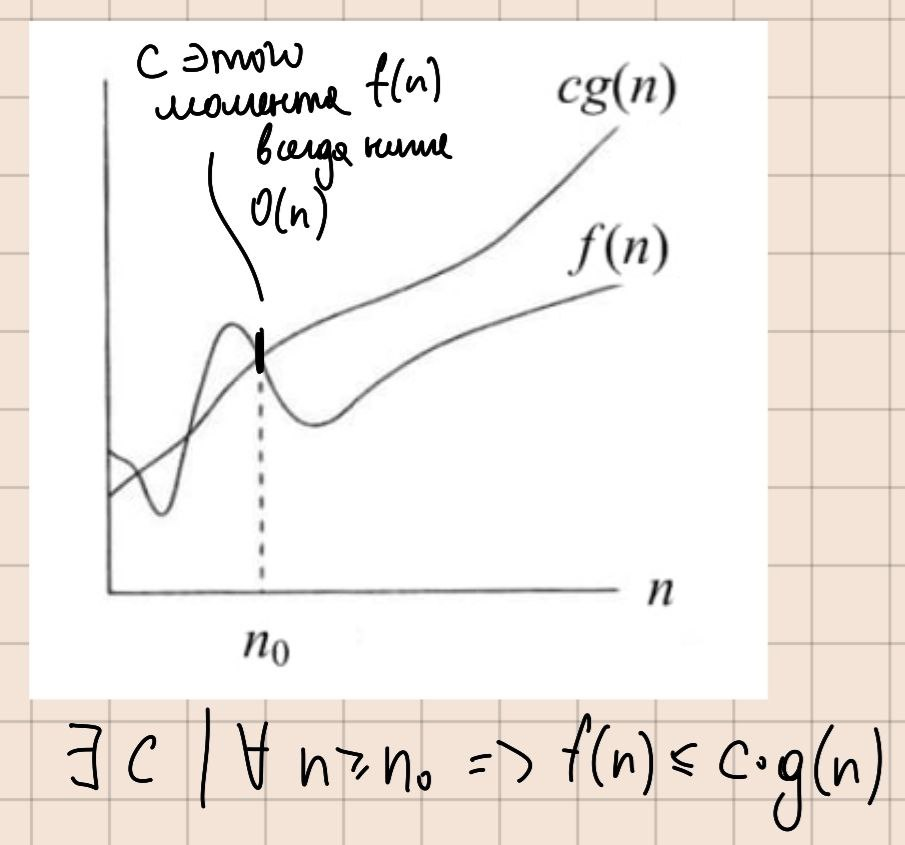 С этого
момента f(n)
всегда ниже
O(n)
cg(n)
f(n)
n
n₀
∃ c | ∀ n ≥ n₀ => f(n) ≤ c·g(n)